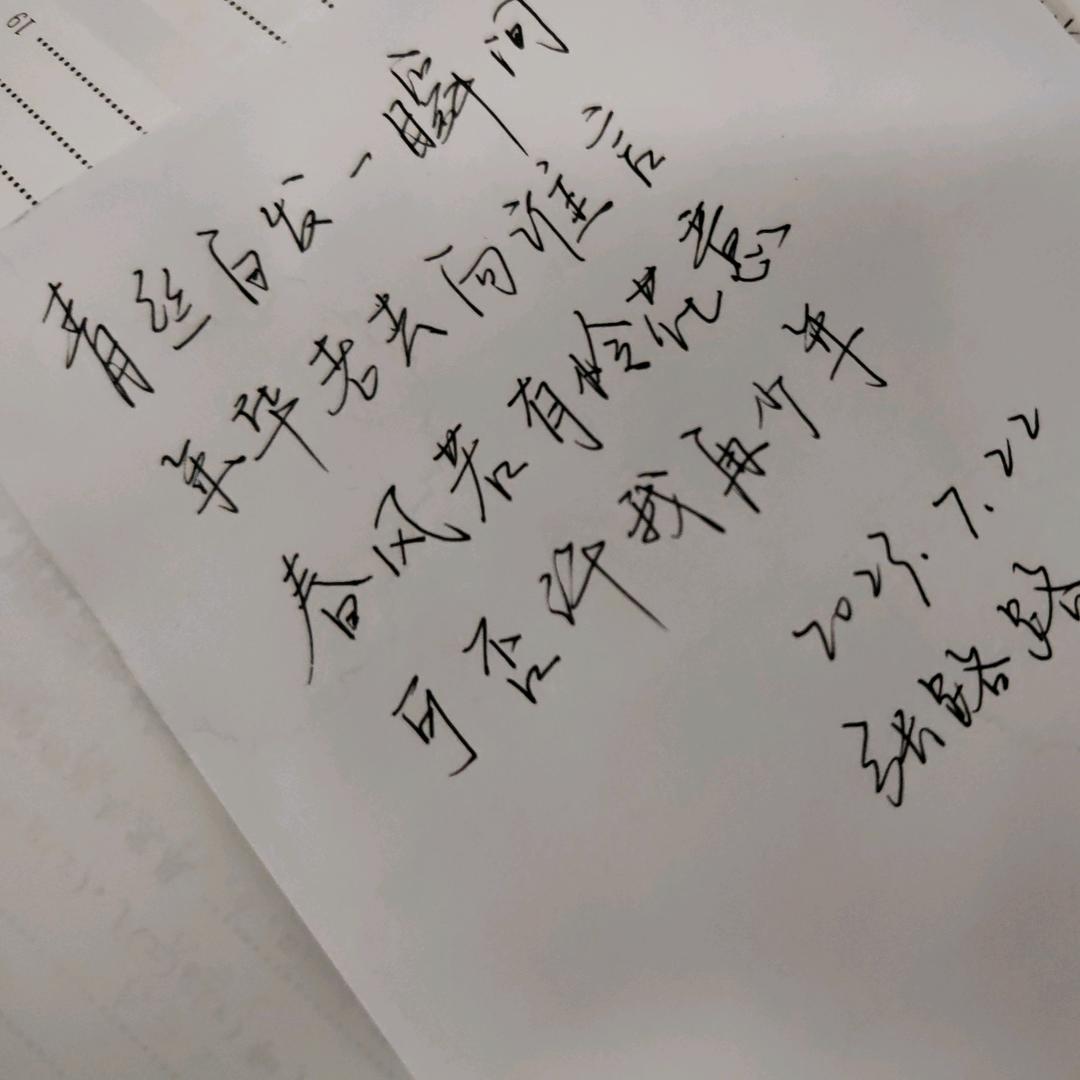 青丝白发一瞬间
年华老去向谁言
春风若有怜花意
可否许我再少年
2023.7.22
张璐璐
19